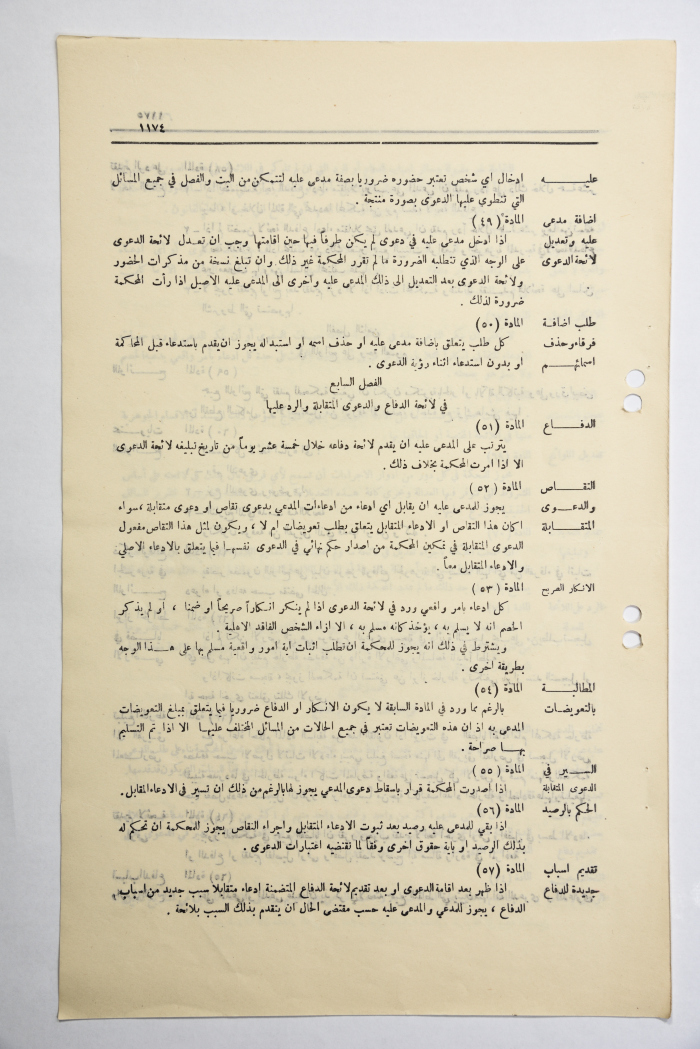 ١١٧٤
عليـــه ادخال اي شخص تعتبر حضوره ضروريا بصفة مدعى عليه لتتمكن من البت والفصل في جميع المسائل
التي تنطوي عليها الدعوى بصورة منتجة .
اضافة مدعى المادة (٤٩)
عليه وتعديل اذا ادخل مدعى عليه في دعوى لم يكن طرفاً فيها حين اقامتها وجب ان تعدل لائحة الدعوى
لائحة الدعوى على الوجه الذي تتطلبه الضرورة ما لم تقرر المحكمة غير ذلك وان تبلغ نسخة من مذكرات الحضور
ولائحة الدعوى بعد التعديل الى ذلك المدعى عليه واخرى الى المدعى عليه الاصيل اذا رأت المحكمة
ضرورة لذلك .
طلب اضافة المادة (٥٠)
فرقاء وحذف كل طلب يتعلق باضافة مدعى عليه او حذف اسمه او استبداله يجوز ان يقدم باستدعاء قبل المحاكمة
اسمائهم او بدون استدعاء اثناء رؤية الدعوى .
الفصل السابع
في لائحة الدفاع والدعوى المتقابلة والرد عليها
الدفـــاع المادة (٥١)
يترتب على المدعى عليه ان يقدم لائحة دفاعه خلال خمسة عشر يوماً من تاريخ تبليغه لائحة الدعوى
الا اذا امرت المحكمة بخلاف ذلك .
التقـــاص المادة (٥٢)
والدعـــوى يجوز للمدعى عليه ان يقابل اي ادعاء من ادعاءات المدعي بدعوى تقاص او دعوى متقابلة ، سواء
المتقـــابلة اكان هذا التقاص او الادعاء المتقابل يتعلق بطلب تعويضات ام لا ، ويكون لمثل هذا التقاص مفعول
الدعوى المتقابلة في تمكين المحكمة من اصدار حكم نهائي في الدعوى نفسها فيما يتعلق بالادعاء الاصلي
والادعاء المتقابل معاً .
الانكار الصريح المادة (٥٣)
كل ادعاء بامر واقعي ورد في لائحة الدعوى اذا لم ينكر انكاراً صريحاً او ضمنا ، او لم يذكر
الخصم انه لا يسلم به ، يؤخذ كانه مسلم به ، الا ازاء الشخص الفاقد الاهلية .
ويشترط في ذلك انه يجوز للمحكمة ان تطلب اثبات اية امور واقعية مسلم بها على هـــذا الوجه
بطريقة اخرى .
المطالبـــة المادة (٥٤)
بالتعويضات بالرغم مما ورد في المادة السابقة لا يكون الانكار او الدفاع ضروريا فيما يتعلق بمبلغ التعويضات
المدعى به اذ ان هذه التعويضات تعتبر في جميع الحالات من المسائل المختلف عليها الا اذا تم التسليم
بهـــا صراحة .
الســـير في المادة (٥٥)
الدعوى المتقابلة اذا اصدرت المحكمة قرار باسقاط دعوى المدعي يجوز لها بالرغم من ذلك ان تسير في الادعاء المقابل .
الحكم بالرصيد المادة (٥٦)
اذا بقي للمدعى عليه رصيد بعد ثبوت الادعاء المتقابل واجراء التقاص يجوز للمحكمة ان تحكم له
بذلك الرصيد او باية حقوق اخرى وفقاً لما تقتضيه اعتبارات الدعوى .
تقديم اسباب المادة (٥٧)
جديدة للدفاع اذا ظهر بعد اقامة الدعوى او بعد تقديم لائحة الدفاع المتضمنة ادعاء متقابلا سبب جديد من اسباب
الدفاع ، يجوز للمدعي والمدعى عليه حسب مقتضى الحال ان يتقدم بذلك السبب بلائحة .